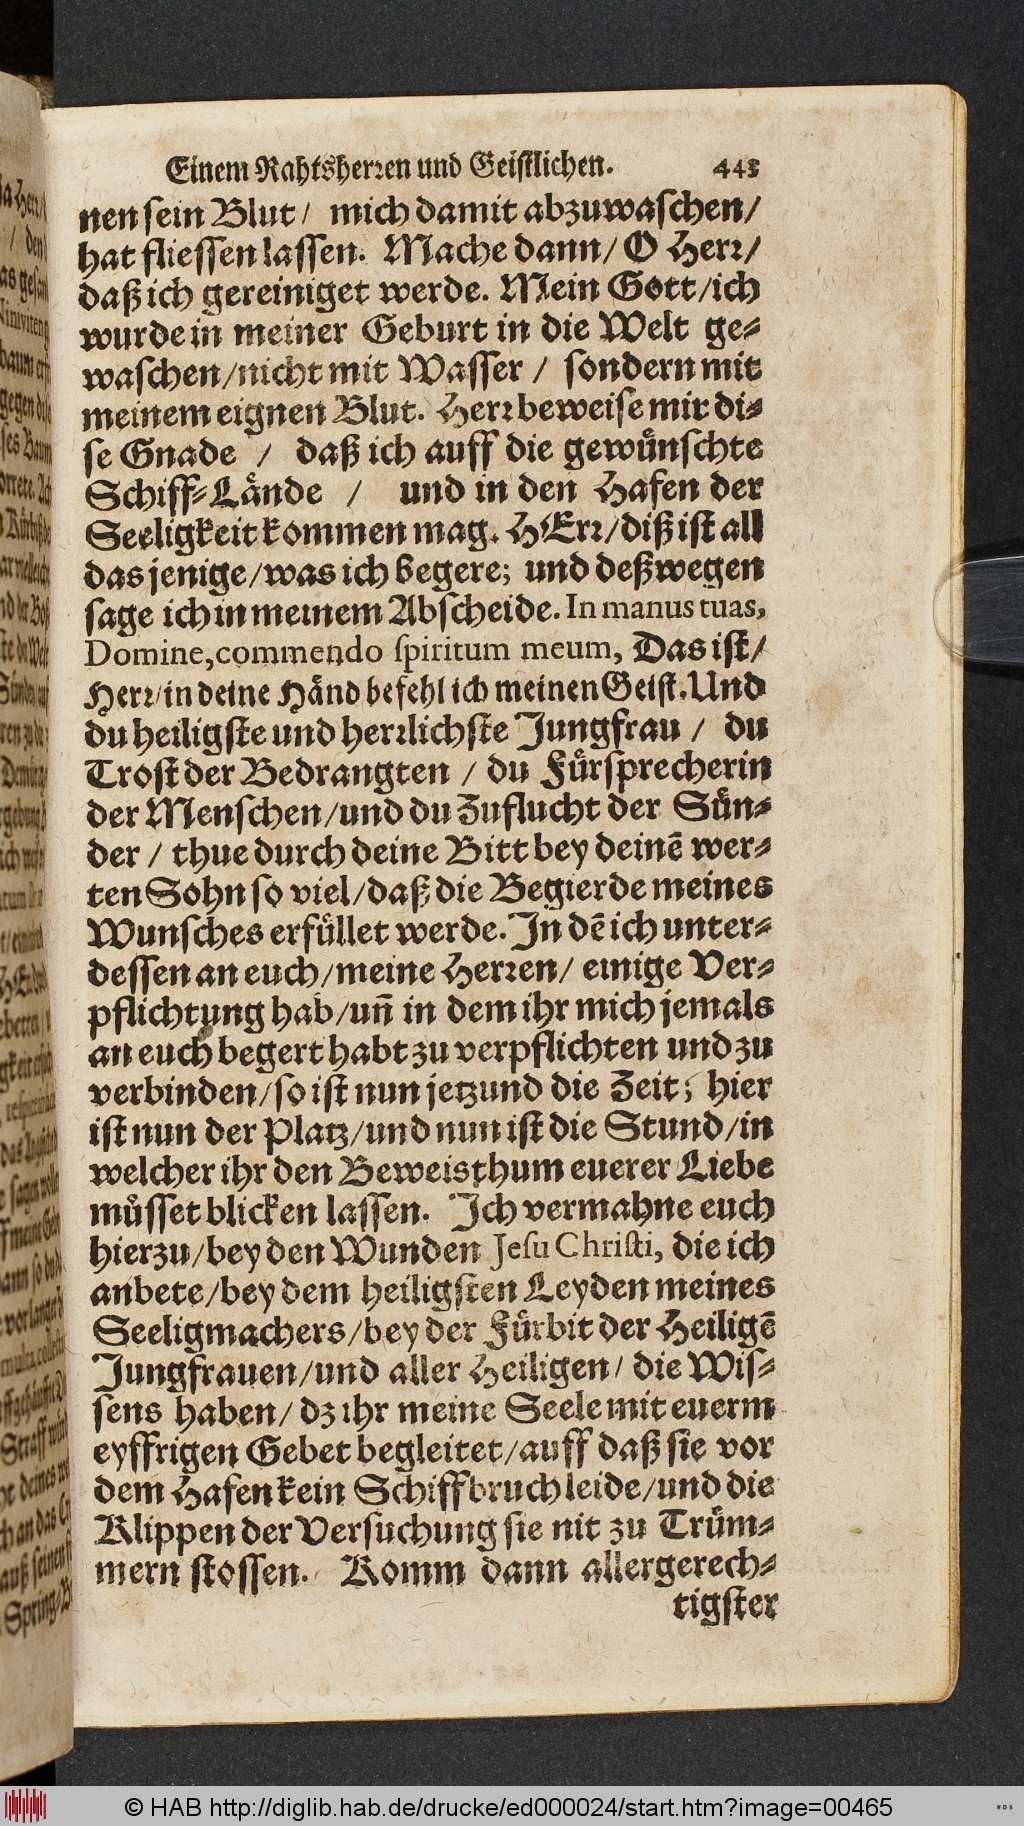 Einem Rahtsherren und Geistlichen. 443
nen sein Blut / mich damit abzuwaschen /
hat fliessen lassen. Mache dann / O Herr /
daß ich gereiniget werde. Mein Gott / ich
wurde in meiner Geburt in die Welt ge-
waschen / nicht mit Wasser / sondern mit
meinem eignen Blut. Herr beweise mir di-
se Gnade / daß ich auff die gewünschte
Schiff-Lände / und in den Hafen der
Seeligkeit kommen mag. HErr / diß ist all
das jenige / was ich begere; und deßwegen
sage ich in meinem Abscheide. In manus tuas,
Domine, commendo spiritum meum, Das ist /
Herr / in deine Händ befehl ich meinen Geist. Und
du heiligste und herrlichste Jungfrau / du
Trost der Bedrangten / du Fürsprecherin
der Menschen / und du Zuflucht der Sün-
der / thue durch deine Bitt bey deinē wer-
ten Sohn so viel / daß die Begierde meines
Wunsches erfüllet werde. In dē ich unter-
dessen an euch / meine Herren / einige Ver-
pflichtung hab / uñ in dem ihr mich jemals
an euch begert habt zu verpflichten und zu
verbinden / so ist nun jetzund die Zeit; hier
ist nun der Platz / und nun ist die Stund / in
welcher ihr den Beweisthum euerer Liebe
müsset blicken lassen. Ich vermahne euch
hierzu / bey den Wunden Jesu Christi, die ich
anbete / bey dem heiligsten Leyden meines
Seeligmachers / bey der Fürbit der Heiligē
Jungfrauen / und aller Heiligen / die Wis-
sens haben / dz ihr meine Seele mit euerm
eyffrigen Gebet begleitet / auff daß sie vor
dem Hafen kein Schiffbruch leide / und die
Klippen der Versuchung sie nit zu Trüm-
mern stossen. Komm dann allergerech-
tigster
© HAB http://diglib.hab.de/drucke/ed000024/start.htm?image=00465